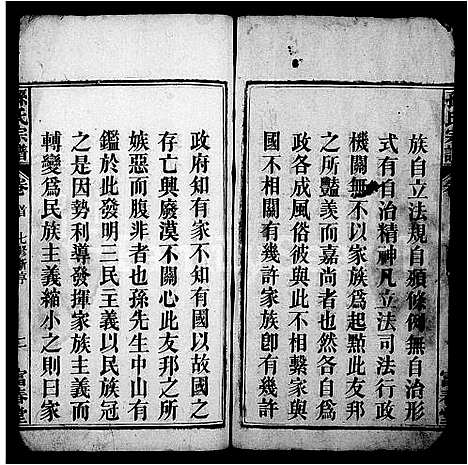 族自立法規自頒條例無自治形
式有自治精神凡立法司法行政
機關無不以家族爲起點此友邦
之所豔羨而嘉尚者也然至各自爲
政各成風俗家與家不相聯繫家與
國不相關有幾許家族卽有幾許
政府知有家不知有國以故國之
存亡興廢漠不關心此友邦之所
嫉惡而腹非者也孫先生中山有
鑑於此發明三民主義以民族冠
之是因勢利導發揮家族主義而
轉變爲民族主義縮小之則曰家
氏宗譜
卷首
富春堂